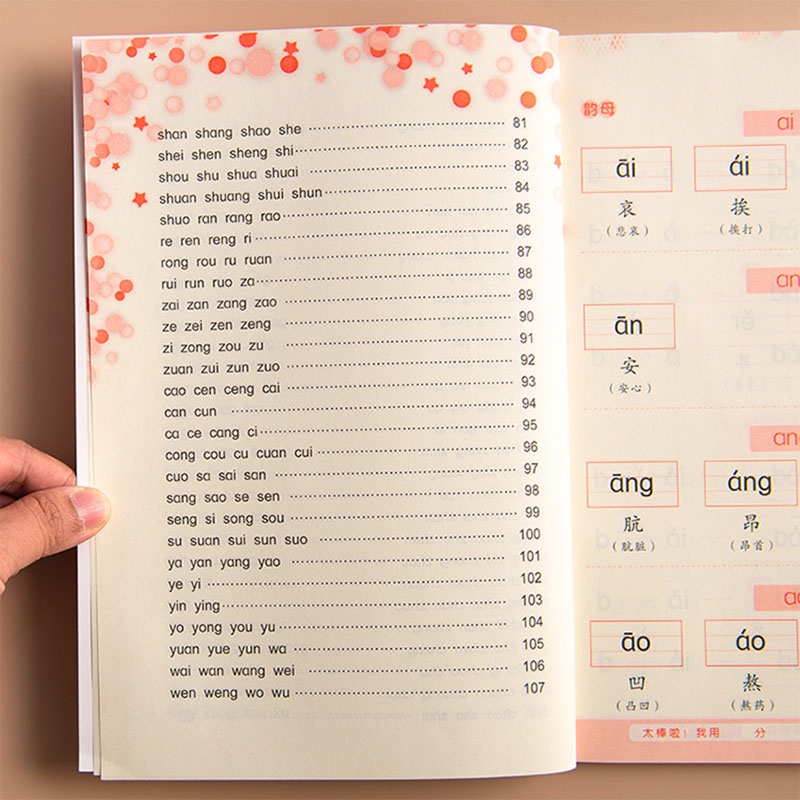 shan shang shao she ……………………… 81
shei shen sheng shi ……………………… 82
shou shu shua shuai ……………………… 83
shuan shuang shui shun ……………………… 84
shuo ran rang rao ……………………… 85
re ren reng ri ……………………… 86
rong rou ru ruan ……………………… 87
rui run ruo za ……………………… 88
zai zan zang zao ……………………… 89
ze zei zen zeng ……………………… 90
zi zong zou zu ……………………… 91
zuan zui zun zuo ……………………… 92
cao cen ceng cai ……………………… 93
can cun ……………………… 94
ca ce cang ci ……………………… 95
cong cou cu cuan cui ……………………… 96
cuo sa sai san ……………………… 97
sang sao se sen ……………………… 98
seng si song sou ……………………… 99
su suan sui sun suo ……………………… 100
ya yan yang yao ……………………… 101
ye yi ……………………… 102
yin ying ……………………… 103
yo yong you yu ……………………… 104
yuan yue yun wa ……………………… 105
wai wan wang wei ……………………… 106
wen weng wo wu ……………………… 107
韵母
ai
āi ái
哀 挨
(悲哀) (挨打)
an
ān
安
(安心)
ang
āng áng
肮 昂
(肮脏) (昂首)
ao
āo áo
凹 熬
(凸凹) (熬药)
太棒啦！我用 分